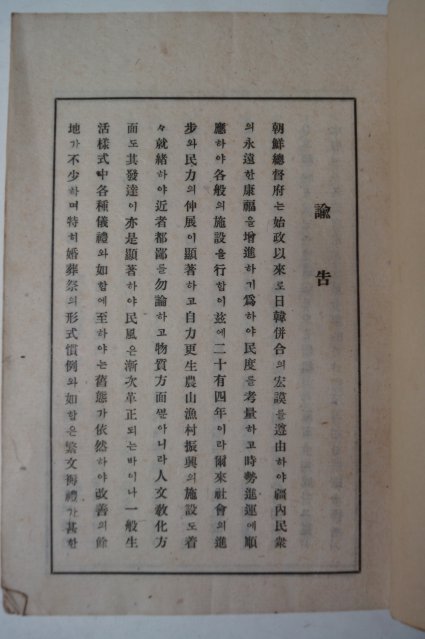 諭告
朝鮮總督府는始政以來로日韓併合의宏謨를遵由하야疆內民衆
의永遠한康福을增進하기爲하야民度를考量하고時勢進運에順
應하야各般의施設을行함이玆에二十有四年이라爾來社會의進
步와民力의伸展이顯著하고自力更生農山漁村振興의施設도着
々就緒하야近者都鄙를勿論하고物質方面뿐아니라人文敎化方
面도其發達이亦是顯著하야民風은漸次革正되는바이나一般生
活樣式中各種儀禮와如함에至하야는舊態가依然하야改善의餘
地가不少하며特히婚葬祭의形式慣例와如함은繁文縟禮가甚한